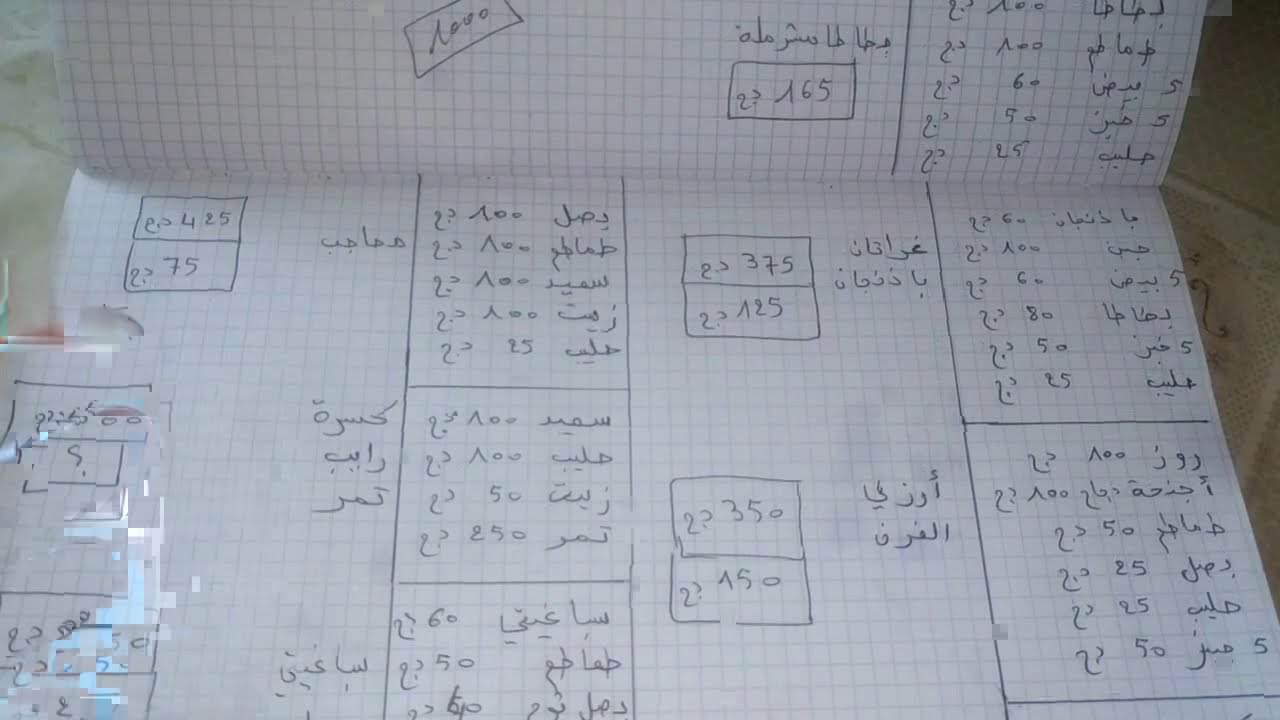 بطاطا 100 دج
طماطم 100 دج
5 بيض 60 دج
5 خبز 50 دج
حليب 25 دج
بطاطا مشرملة
165 دج
1000
باذنجان 60 دج
جبن 100 دج
5 بيض 60 دج
بطاطا 80 دج
5 خبز 50 دج
حليب 25 دج
غراتان
باذنجان
375 دج
125 دج
روز 100 دج
أجنحة دجاج 100 دج
طماطم 50 دج
بصل 25 دج
حليب 25 دج
5 خبز 50 دج
أرز في
الفرن
350 دج
150 دج
بصل 100 دج
طماطم 100 دج
سميد 100 دج
زيت 100 دج
حليب 25 دج
محاجب
425 دج
75 دج
سميد 100 دج
حليب 100 دج
زيت 50 دج
تمر 250 دج
كسرة
رايب
تمر
سباغيتي 60 دج
طماطم 50 دج
بصل
دج
سباغيتي